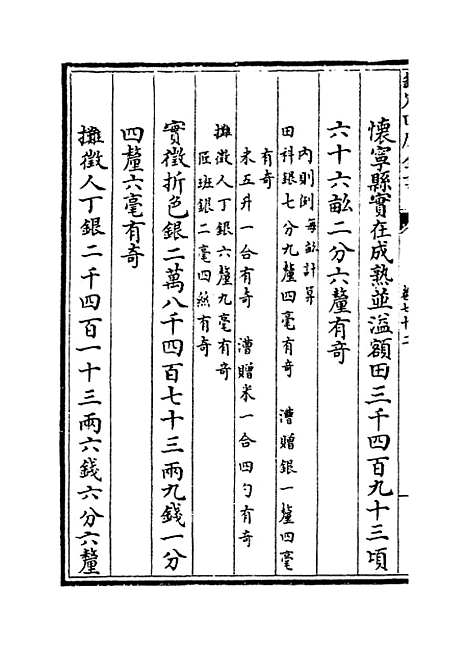 卷七十二
懷寧縣實在成熟並溢額田三千四百九十三頃
六十六畝二分六釐有奇
內則例每畝計算
田科銀七分九釐四毫有奇　漕贈銀一釐四毫
有奇
米五升一合有奇　漕贈米一合四勺有奇
攤徵人丁銀六釐九毫有奇
匠班銀二毫四絲有奇
實徵折色銀二萬八千四百七十三兩九錢一分
四釐六毫有奇
攤徵人丁銀二千四百一十三兩六錢六分六釐